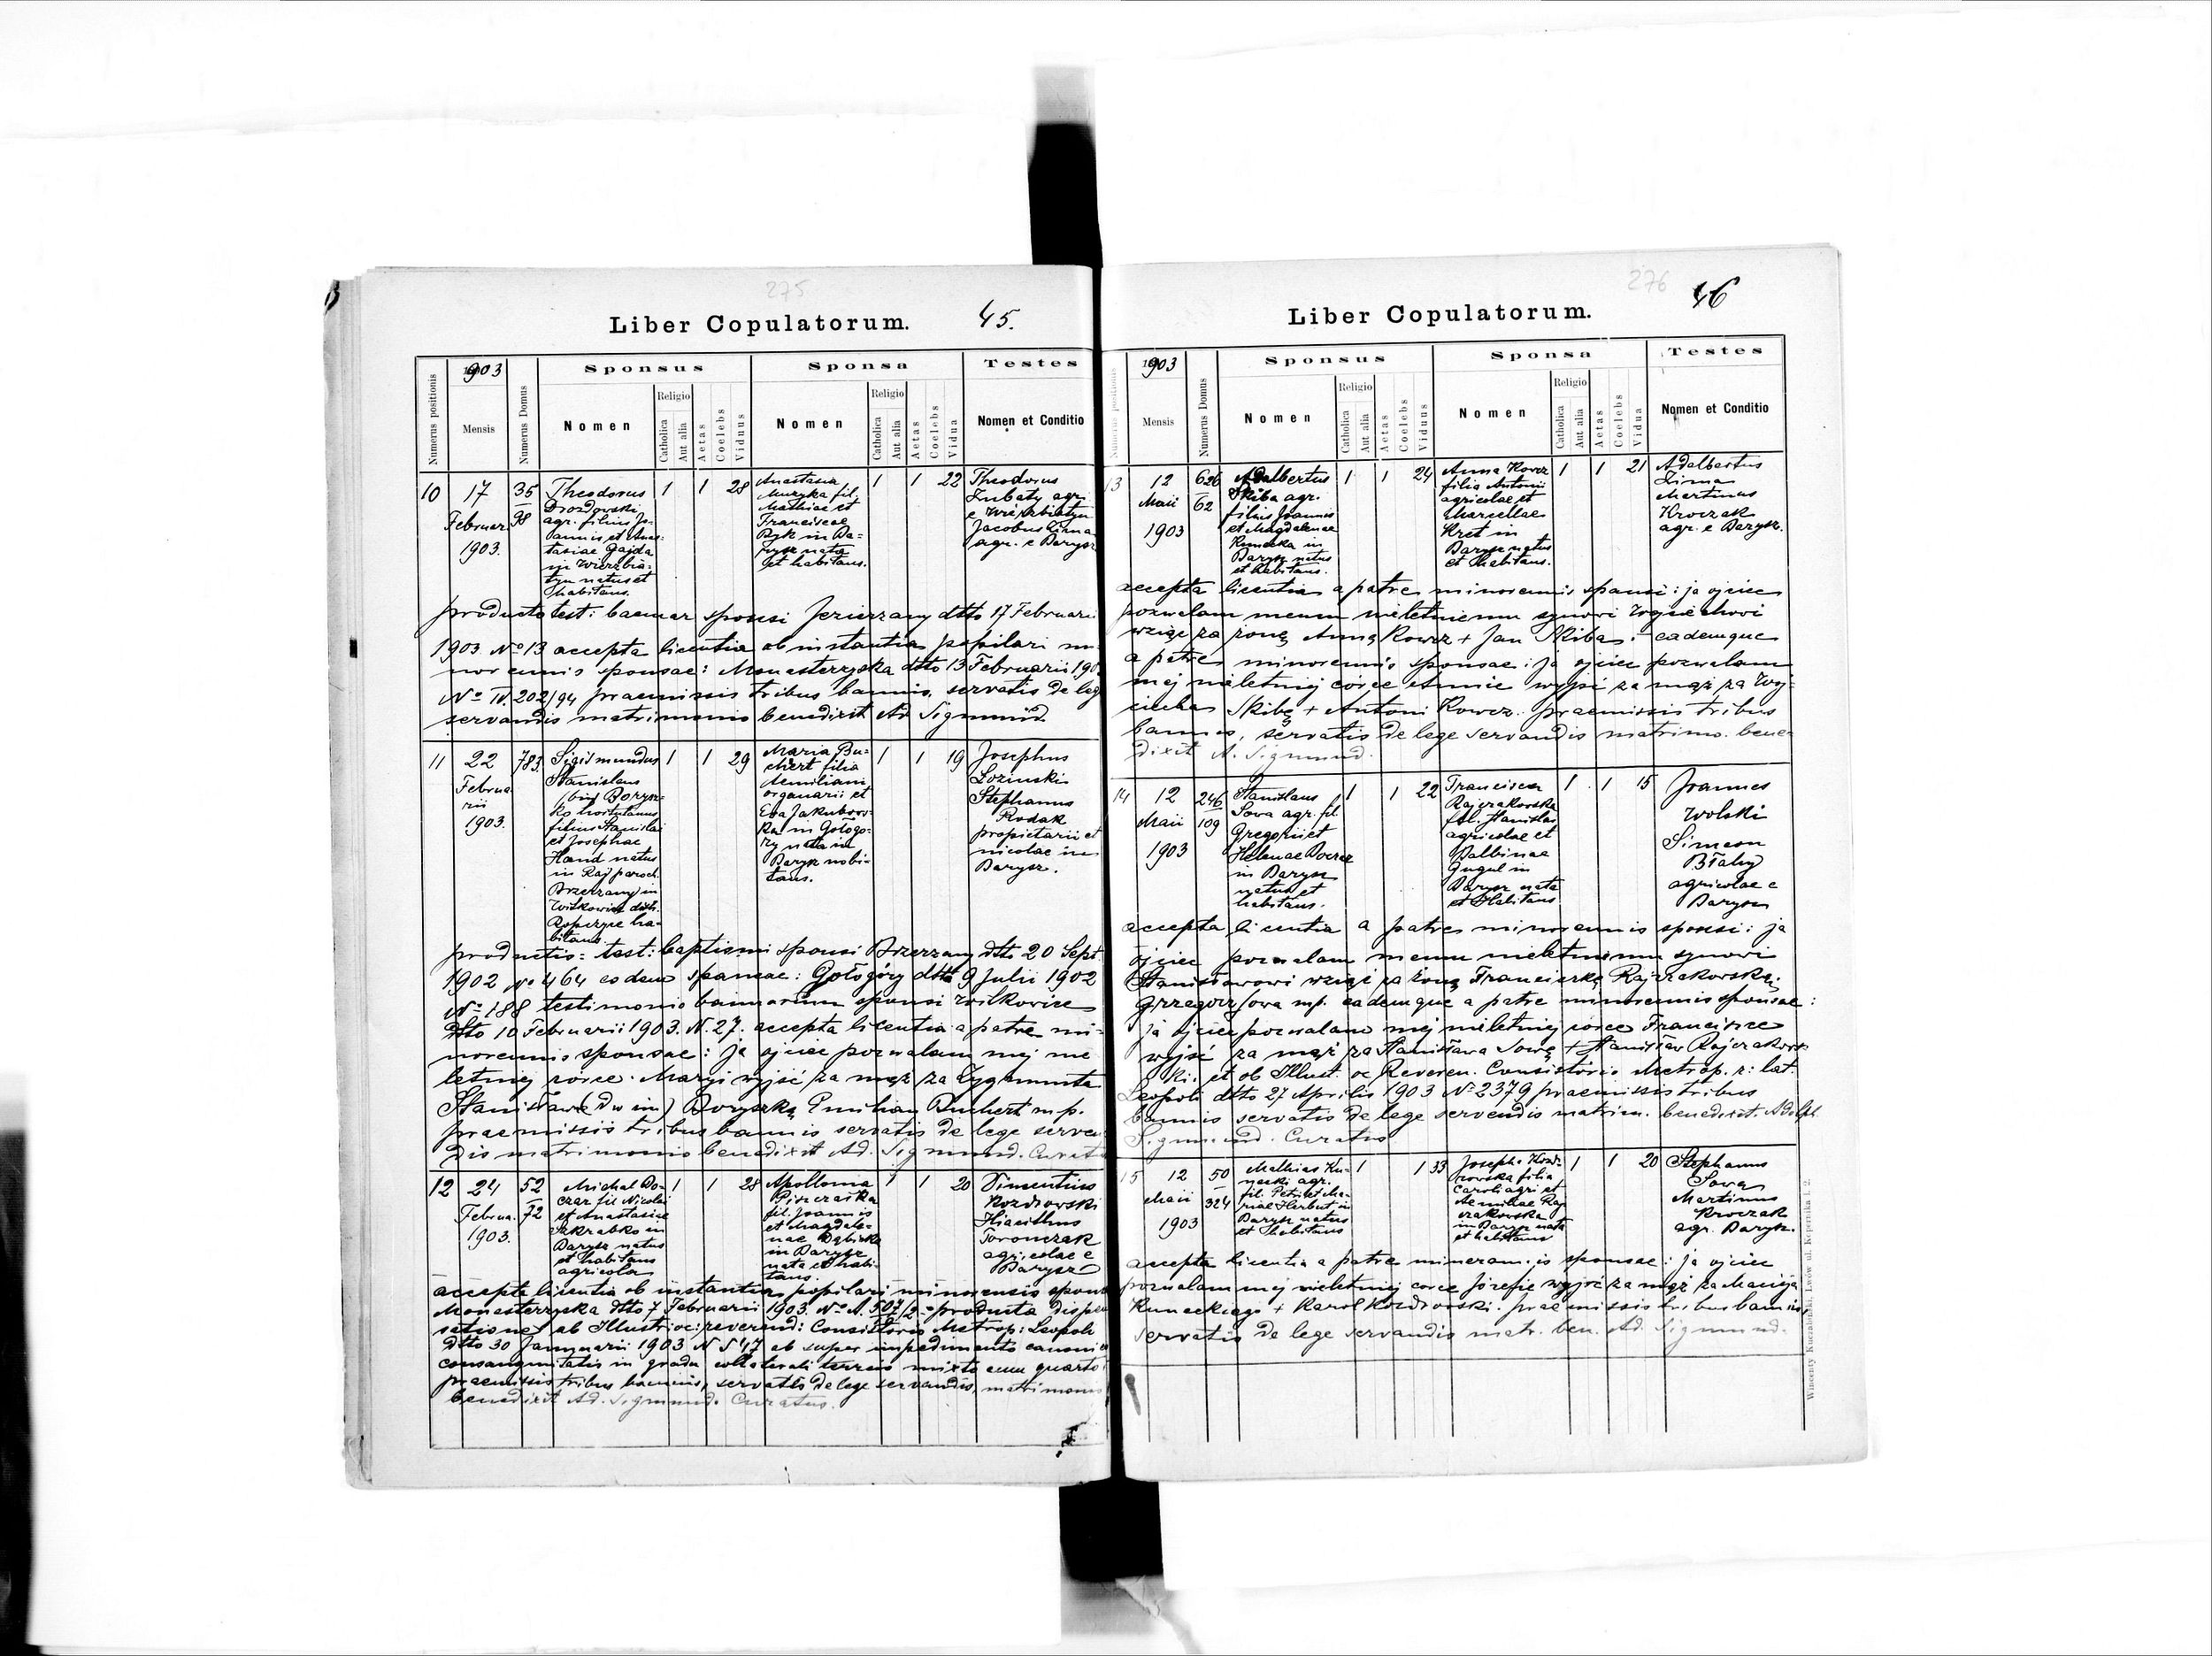 275
Liber Copulatorum.
45.
1903
Sponsus
Sponsa
Testes
Numerus positionis
Mensis
Numerus Domus
Nomen
Religio
Catholica
Aut alia
Aetas
Coelebs
Viduus
Nomen
Religio
Catholica
Aut alia
Aetas
Coelebs
Vidua
Nomen et Conditio
10
17
Februar.
1903.
35
98
Theodorus
Drozdowski
agr. filius Jo-
annis et Anas-
tasiae Gajda
in Wierzbia-
tyn natus et
habitans.
1
1
28
Anastasia
Muzyka fil.
Mathiae et
Franciscae
Byk in Ba-
rysz nata
et habitans.
1
1
22
Theodorus
Zubaty agr.
e Wierzbiatyn
Jacobus Zima
agr. e Barysz
producto test: bannor sponsi Jezierzany dtto 17 Februarii
1903 No 13 accepta licentia ob instantia pupilari mi-
norennis sponsae: Monasterzyska dtto 13 Februarii 190
No IV. 202/94 praemissis tribus bannis, servatis de leg
servandis matrimonio benedixit Ad Sigmund.
11
22
Februa-
rii
1903.
783.
Sigismundus
Stanislaus
bin Borysz-
ko hortulanus
filius Stanislai
et Josephae
Hand natus
in Raj paroch.
Brzezany in
Witkowice distr.
Ropczyce ha-
bitans.
1
1
29
Maria Bu-
chert filia
Aemiliani
organarii et
Eva Jakubow-
ska in Gołogo-
ry nata in
Barysz habi-
tans.
1
1
19
Josephus
Lozinski
Stephanus
Rodak
propietarii et
nicolae in
Barysz.
productis: test: baptismi sponsi Brzezany dtto 20 Sept.
1902 No 464 eodem sponsae: Gołogóry dtto 9 Julii 1902
No 188 testimonio bannorum sponsi Witkowice
dtto 10 Februarii 1903. N. 27. accepta licentia a patre mi-
norennis sponsae: ja ojciec pozwalam mej nie
letniej córce Maryi wyjść za mąż za Zygmunta
Stanisława (dw im) Boryszkę Emilian Buchert mp.
praemissis tribus bannis servatis de lege serven
dis matrimonio benedixit Ad. Sigmund. Curatus
12
24
Februa.
1903.
52
72
Michał Do-
czar fil Nicolai
et Anastasiae
Skrabko in
Barysz natus
et habitans
agricola
1
1
28
Apollonia
Piszczatka
fil. Joannis
et Magdale-
nae Dąbicka
in Barysz
nata et habi-
tans.
1
1
20
Simentius
Kozdrowski
Hiacinthus
Toronczak
agricolae e
Barysz
accepta licentia ob instantia popilari minorensis sponsi
Monasterzyska dtto 7 Februarii 1903. No A. 507/2 producta dispen
satione ab Illustri oc: reverend: Consistorio Metrop: Leopoli
dtto 30 Januarii 1903 N 517 ab super impedimento canonico
consanguinitatis in gradu collaterali tertio mixto cum quarto
praemissis tribus bannis, servatis de lege servandis, matrimonio
benedixit Ad. Sigmund. Curatus.
276
46
Liber Copulatorum.
1903
Sponsus
Sponsa
Testes
Numerus positionis
Mensis
Numerus Domus
Nomen
Religio
Catholica
Aut alia
Aetas
Coelebs
Viduus
Nomen
Religio
Catholica
Aut alia
Aetas
Coelebs
Vidua
Nomen et Conditio
13
12
Maii
1903
626
62
Adalbertus
Skiba agr.
filius Joannis
et Magdalenae
Kunecka in
Barysz natus
et habitans.
1
1
24
Anna Kowcz
filia Antonii
agricolae et
Marcellae
Kret in
Barysz natus
et habitans.
1
1
21
Adalbertus
Zima
Martinus
Kroczak
agr. e Barysz.
accepta licentia a patre minorennis sponsi: ja ojciec
pozwalam memu nieletniemu synowi Wojciechowi
wziąć za żonę Annę Kowcz + Jan Skiba. eademque
a patre minorennis sponsae: ja ojciec pozwalam
mej nieletniej córce Annie wyjść za mąż za Woj-
ciecha Skibę + Antoni Kowcz. praemissis tribus
bannis, servatis de lege servandis matrimo. bene-
dixit A. Sigmund.
14
12
Maii
1903
246
109
Stanislaus
Sowa agr. fil.
Gregorii et
Helenae Doczar
in Barysz
natus et
habitans.
1
1
22
Francisca
Rajczakowska
fil. Stanislai
agricolae et
Balbinae
Gugul in
Barysz nata
et habitans
1
1
15
Joannes
Wolski
Simeon
Biały
agricolae e
Barysz
accepta licentia a patre minorennis sponsi: ja
ojciec pozwalam memu nieletniemu synowi
Stanisławowi wziąć za żonę Franciszkę Rajczakowską.
Grzegorz Sowa mp. eademque a patre minorennis sponsae:
ja ojciec pozwalam mej nieletniej córce Franciszce
wyjść za mąż za Stanisława Sowę + Stanisław Rajczakow-
ski. et ob Illust. oc Reveren. Consistorio Metrop. r: lat.
Leopoli dtto 27 Aprilis 1903 No 2379 praemissis tribus
bannis servatis de lege servendis matrim. benedixit. Adolph
Sigmund. Curatus
15
12
Maii
1903
50
324
Mathias Ku-
necki agr.
fil. Petri et Ma-
riae Herbut in
Barysz natus
et habitans
1
1
33
Josepha Kozd-
rowska filia
Caroli agri et
Aemiliae Raj-
czakowska
in Barysz nata
et habitans
1
1
20
Stephanus
Sowa
Martinus
Kroczak
agr. Barysz.
accepta licentia a patre minorennis sponsae: ja ojciec
pozwalam mej nieletniej córce Józefie wyjść za mąż za Macieja
Kuneckiego + Karol Kozdrowski. praemissis tribus bannis,
servatis de lege servandis matr. ben. Ad. Sigmund.
Wincenty Kuczabiński, Lwów ul. Kopernika l. 2.